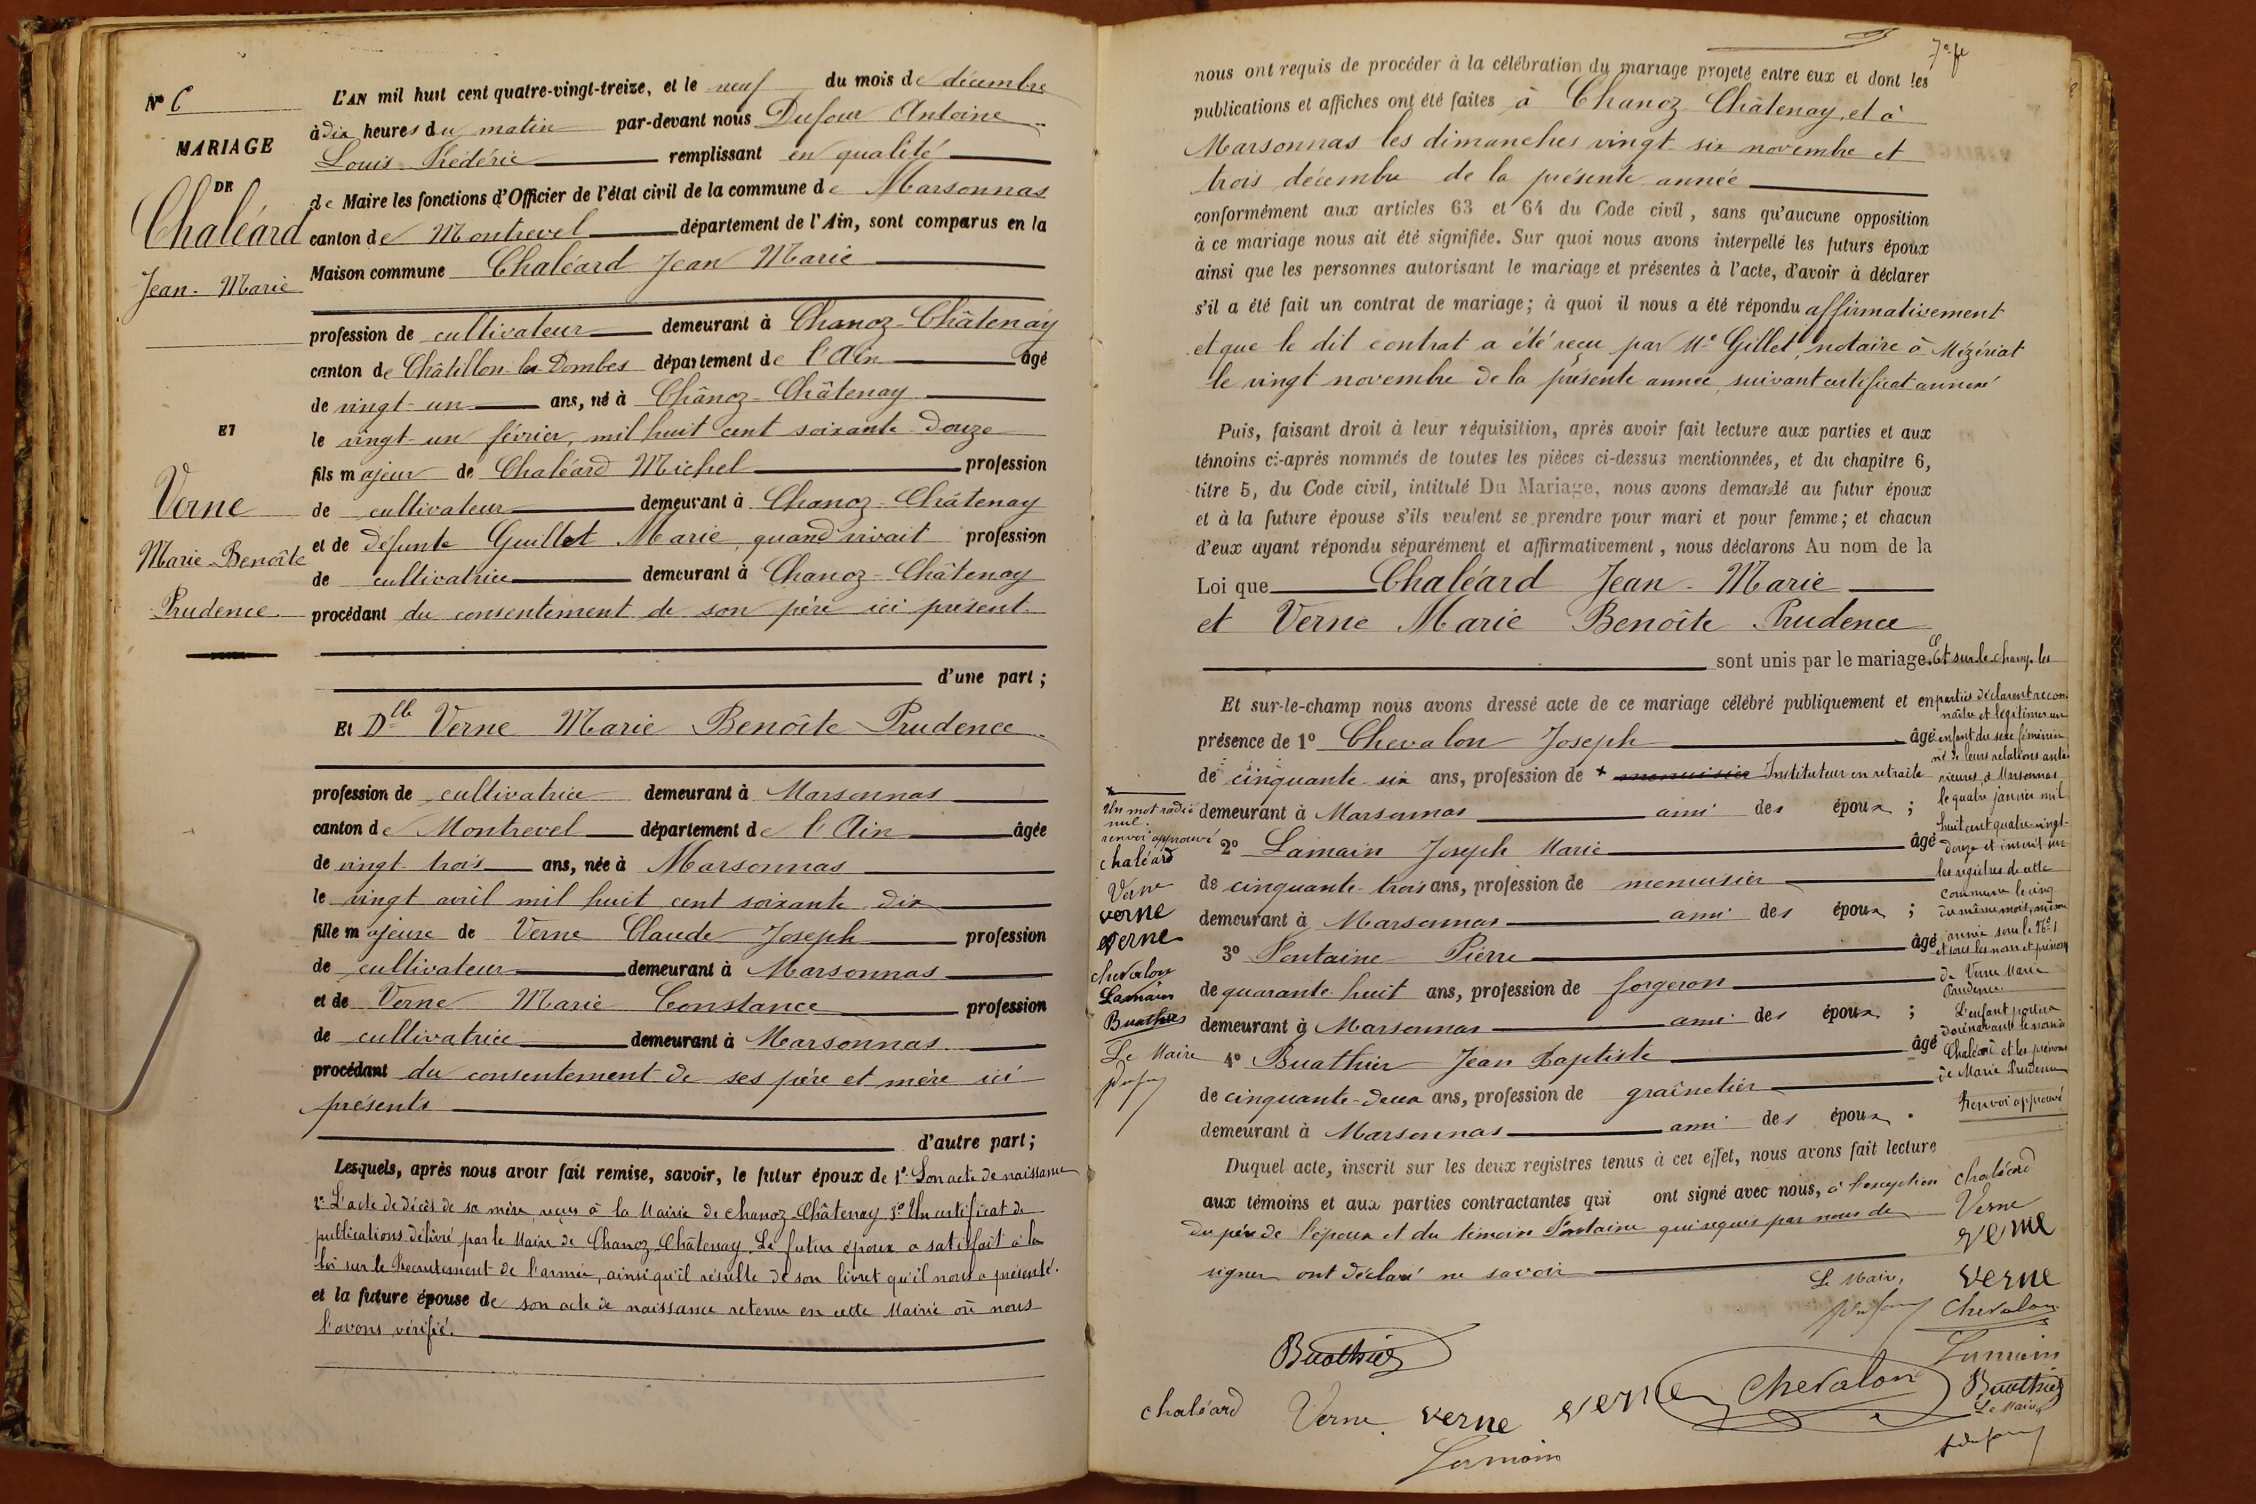 Nº 6
MARIAGE
DE
Chaléard
Jean-Marie
ET
Verne
Marie-Benoîte
Prudence
L'AN mil huit cent quatre-vingt-treize, et le neuf du mois de décembre
à dix heures du matin par-devant nous Dufour Antoine
Louis Frédéric remplissant en qualité
de Maire les fonctions d'Officier de l'état civil de la commune de Marsonnas
canton de Montrevel département de l'Ain, sont comparus en la
Maison commune Chaléard Jean Marie
profession de cultivateur demeurant à Chanoz-Châtenay
canton de Châtillon-les-Dombes département de l'Ain âgé
de vingt-un ans, né à Chânoz-Châtenay
le vingt-un février, mil huit cent soixante-douze
fils majeur de Chaléard Michel profession
de cultivateur demeurant à Chanoz-Châtenay
et de défunte Guillot Marie, quand vivait profession
de cultivatrice demeurant à Chanoz-Châtenay
procédant du consentement de son père ici présent.
d'une part ;
Et Dlle Verne Marie Benoîte Prudence
profession de cultivatrice demeurant à Marsonnas
canton de Montrevel département de l'Ain âgée
de vingt-trois ans, née à Marsonnas
le vingt avril mil huit cent soixante-dix
fille majeure de Verne Claude Joseph profession
de cultivateur demeurant à Marsonnas
et de Verne Marie Constance profession
de cultivatrice demeurant à Marsonnas
procédant du consentement de ses père et mère ici
présents
d'autre part ;
Lesquels, après nous avoir fait remise, savoir, le futur époux de 1º Son acte de naissance
2º L'acte de décès de sa mère, reçus à la Mairie de Chanoz-Châtenay 3º Un certificat de
publications délivré par le Maire de Chanoz-Châtenay. Le futur époux a satisfait à la
loi sur le Recrutement de l'armée, ainsi qu'il résulte de son livret qu'il nous a présenté.
et la future épouse de son acte de naissance retenu en cette Mairie où nous
l'avons vérifié.
7e f
nous ont requis de procéder à la célébration du mariage projeté entre eux et dont les
publications et affiches ont été faites à Chanoz Châtenay, et à
Marsonnas les dimanches vingt-six novembre et
trois décembre de la présente année
conformément aux articles 63 et 64 du Code civil, sans qu'aucune opposition
à ce mariage nous ait été signifiée. Sur quoi nous avons interpellé les futurs époux
ainsi que les personnes autorisant le mariage et présentes à l'acte, d'avoir à déclarer
s'il a été fait un contrat de mariage ; à quoi il nous a été répondu affirmativement
et que le dit contrat a été reçu par Me Gillet, notaire à Mézériat
le vingt novembre de la présente année, suivant certificat annexé
Puis, faisant droit à leur réquisition, après avoir fait lecture aux parties et aux
témoins ci-après nommés de toutes les pièces ci-dessus mentionnées, et du chapitre 6,
titre 5, du Code civil, intitulé Du Mariage, nous avons demandé au futur époux
et à la future épouse s'ils veulent se prendre pour mari et pour femme ; et chacun
d'eux ayant répondu séparément et affirmativement, nous déclarons Au nom de la
Loi que Chaléard Jean-Marie
et Verne Marie Benoîte Prudence
sont unis par le mariage.
Et sur-le-champ nous avons dressé acte de ce mariage célébré publiquement et en
présence de 1º Chevalon Joseph âgé
de cinquante-six ans, profession de + menuisier Instituteur en retraite
demeurant à Marsonnas ami des époux ;
2º Lamain Joseph Marie âgé
de cinquante-trois ans, profession de menuisier
demeurant à Marsonnas ami des époux ;
3º Fontaine Pierre âgé
de quarante-huit ans, profession de forgeron
demeurant à Marsonnas ami des époux ;
4º Buathier Jean Baptiste âgé
de cinquante-deux ans, profession de graînetier
demeurant à Marsonnas ami des époux.
Duquel acte, inscrit sur les deux registres tenus à cet effet, nous avons fait lecture
aux témoins et aux parties contractantes qui ont signé avec nous, à l'exception
du père de l'époux et du témoin Fontaine qui requis par nous de
signer ont déclaré ne savoir
+
Un mot radié
nul.
renvoi approuvé
chaléard
Verne
verne
verne
chevalon
Lamain
Buathier
Le Maire
Dufour
Et sur-le-champ les
parties déclarent recon-
naître et légitimer un
enfant du sexe féminin
né de leurs relations anté-
rieures, à Marsonnas
le quatre janvier mil
huit cent quatre-vingt-
douze et inscrit sur
les registres de cette
commune le cinq
du même mois, même
année sous le Nº 1
et sous les nom et prénoms
de Verne Marie
Prudence.
L'enfant portera
dorénavant le nom de
Chaléard et les prénoms
de Marie Prudence
Renvoi approuvé
chaléard
Verne
verne
verne
Chevalon
Lamain
Buathier
Le Maire
Dufour
Le Maire,
Dufour
Buathier
chaléard Verne verne verne Chevalon
Lamain